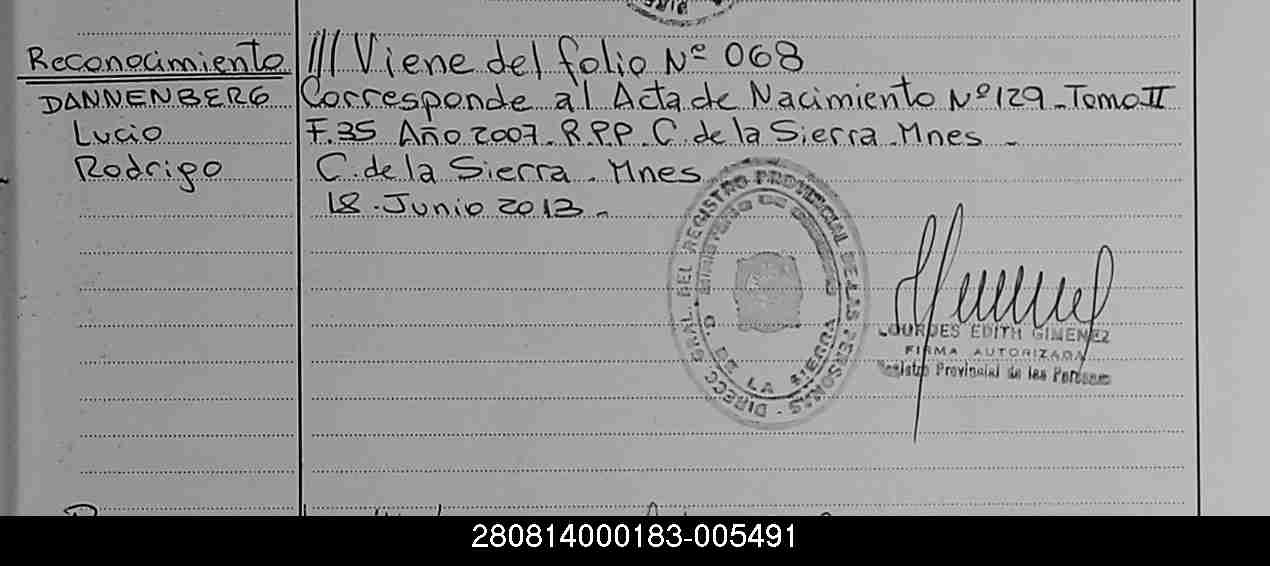 Reconocimiento
DANNENBERG
Lucio
Rodrigo
/// Viene del folio Nº 068
Corresponde al Acta de Nacimiento Nº 129 - Tomo II
F. 35 Año 2007 - R.P.P. C. de la Sierra - Mnes -
C. de la Sierra - Mnes
18 - Junio 2013 -
DIRECC. GRAL. DEL REGISTRO PROVINCIAL DE LAS PERSONAS
MINISTERIO DE GOBIERNO
C. DE LA SIERRA
LOURDES EDITH GIMENEZ
FIRMA AUTORIZADA
Registro Provincial de las Personas
280814000183-005491